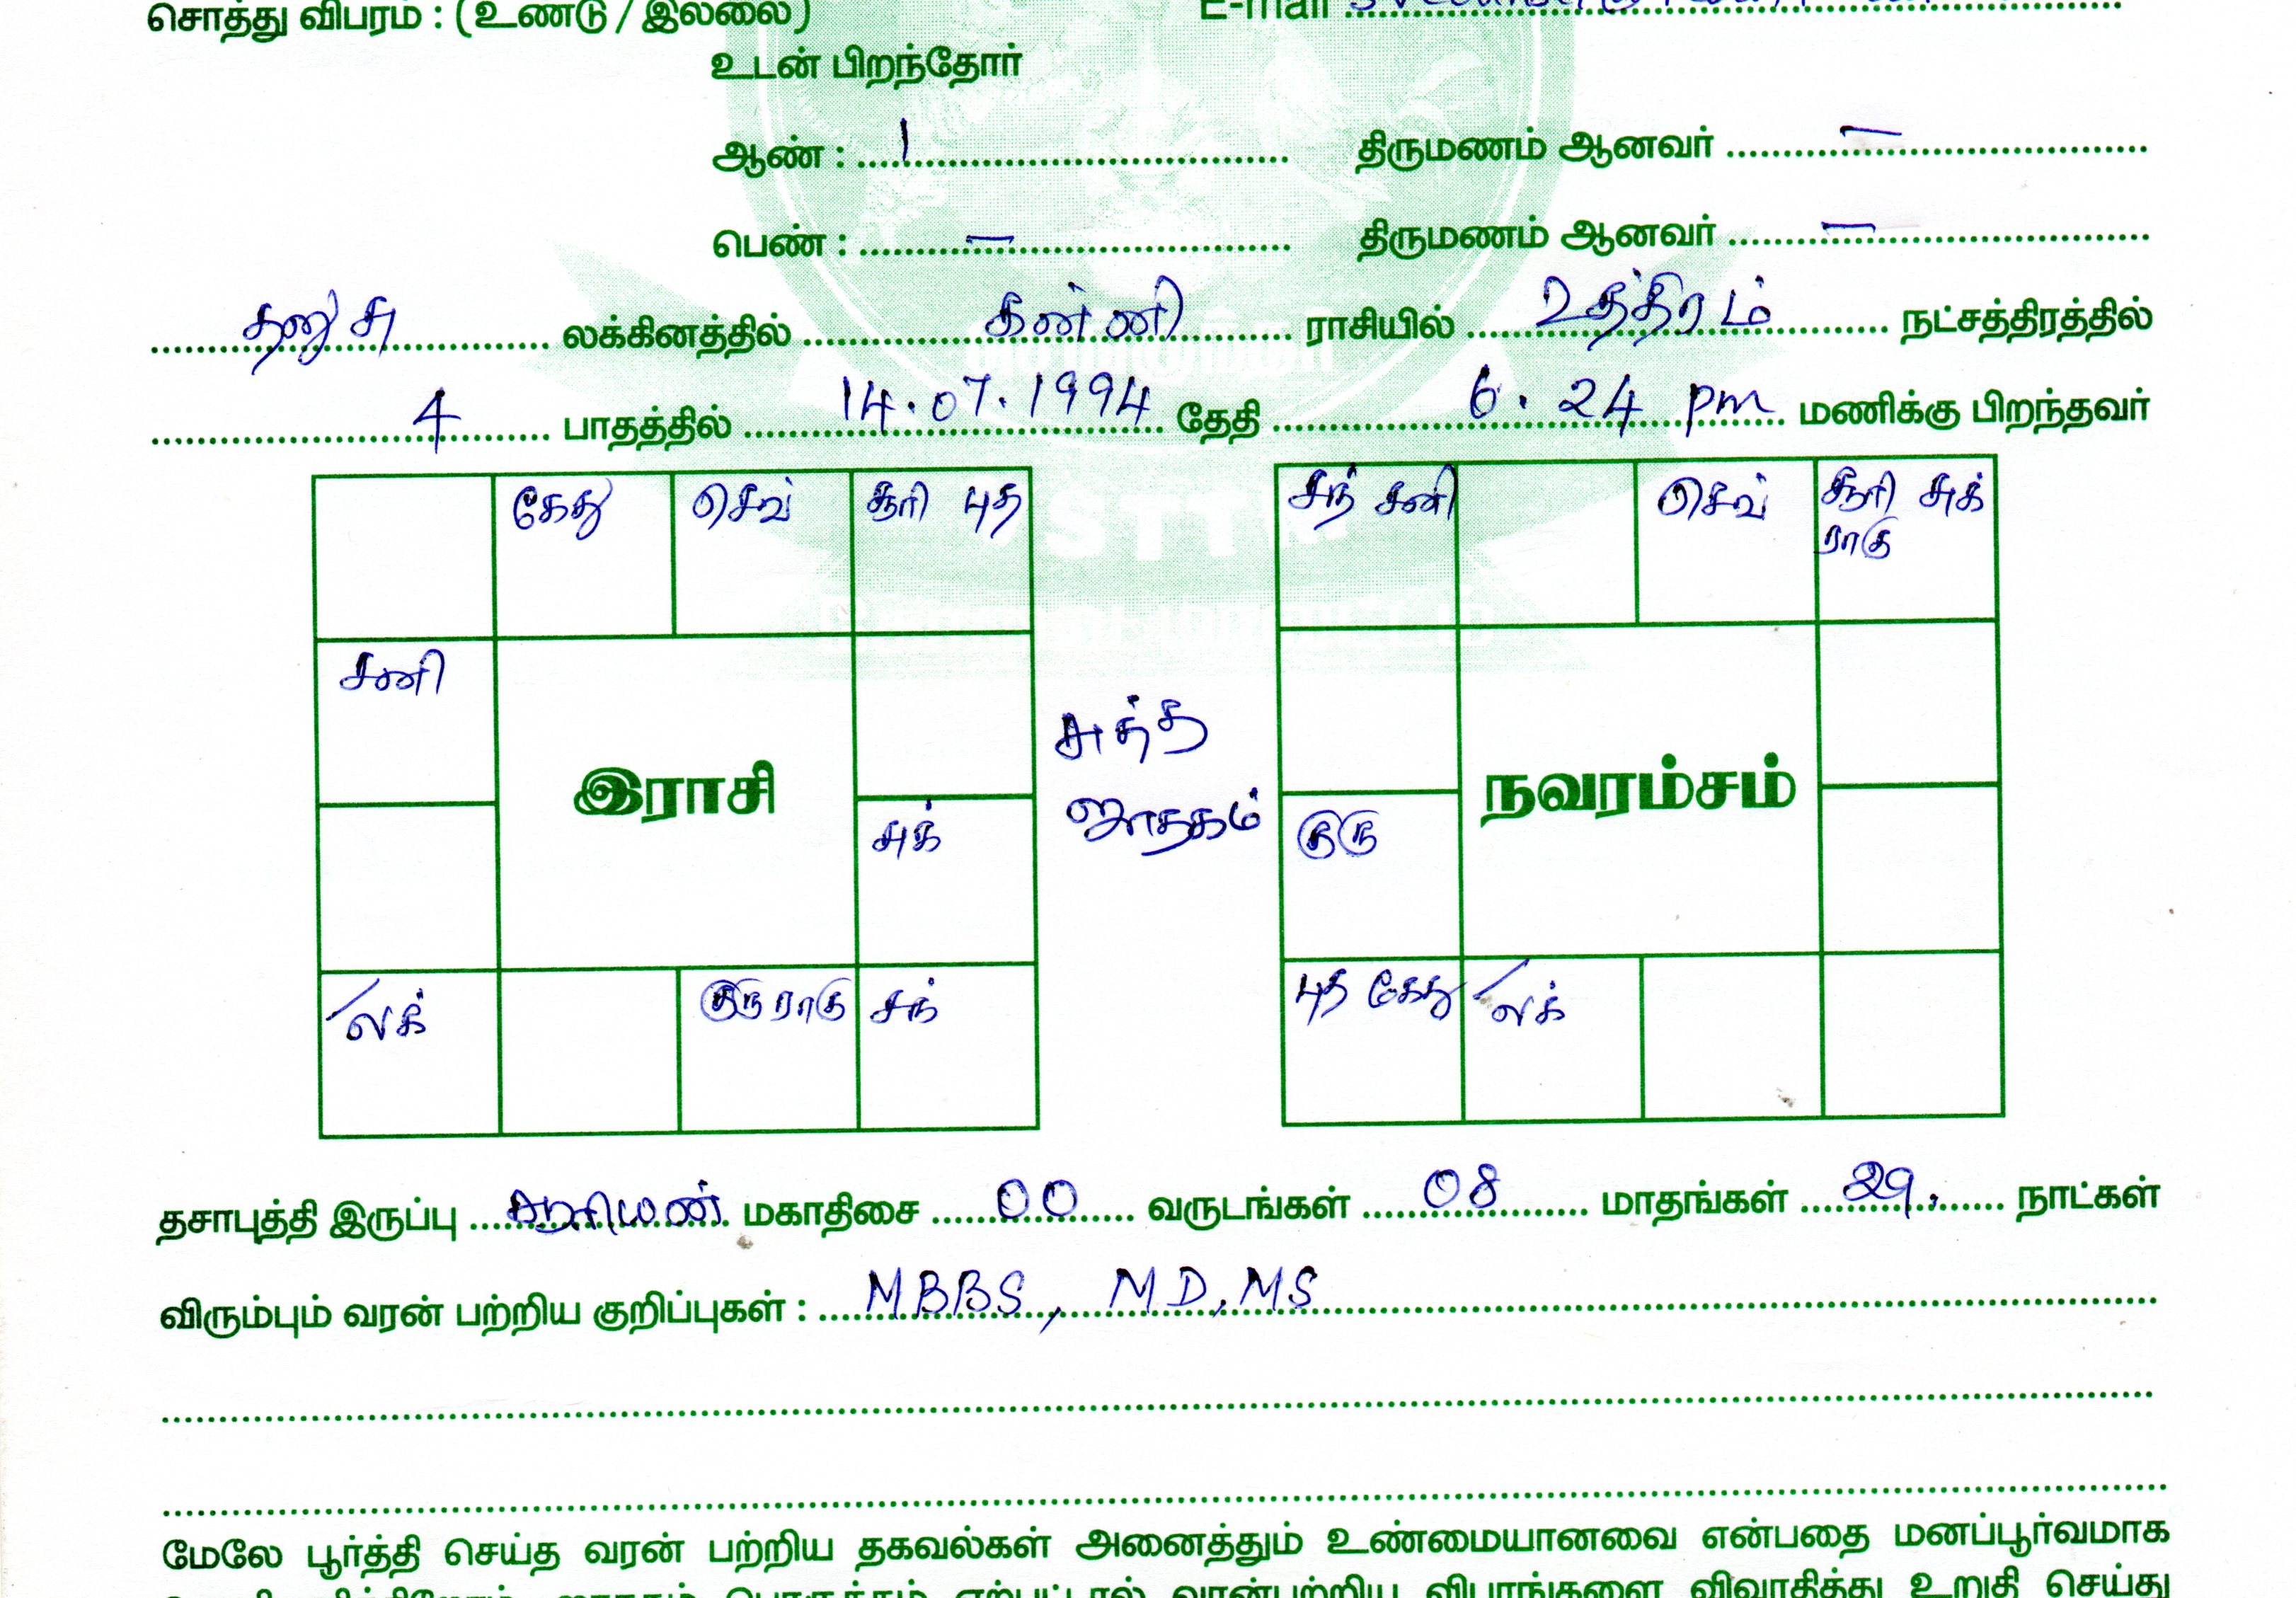 சொத்து விபரம் : (உண்டு / இல்லை) E-mail
உடன் பிறந்தோர்
ஆண் : 1 திருமணம் ஆனவர் —
பெண் : — திருமணம் ஆனவர் —
தனுசு லக்கினத்தில் கன்னி ராசியில் உத்திரம் நட்சத்திரத்தில்
4 பாதத்தில் 14.07.1994 தேதி 6.24 pm மணிக்கு பிறந்தவர்
கேது செவ் சூரி புத
சனி
இராசி
சுக்
லக் குரு ராகு சந்
சுத்த
ஜாதகம்
சந் சனி செவ் சூரி சுக்
ராகு
நவரம்சம்
குரு
புத கேது லக்
தசாபுத்தி இருப்பு சூரியன் மகாதிசை 00 வருடங்கள் 08 மாதங்கள் 29. நாட்கள்
விரும்பும் வரன் பற்றிய குறிப்புகள் : MBBS, MD, MS
மேலே பூர்த்தி செய்த வரன் பற்றிய தகவல்கள் அனைத்தும் உண்மையானவை என்பதை மனப்பூர்வமாக
ஜாதகம் பொருத்தம் ஏற்பட்டால் வரன்பற்றிய விபரங்களை விவாதித்து உறுதி செய்து